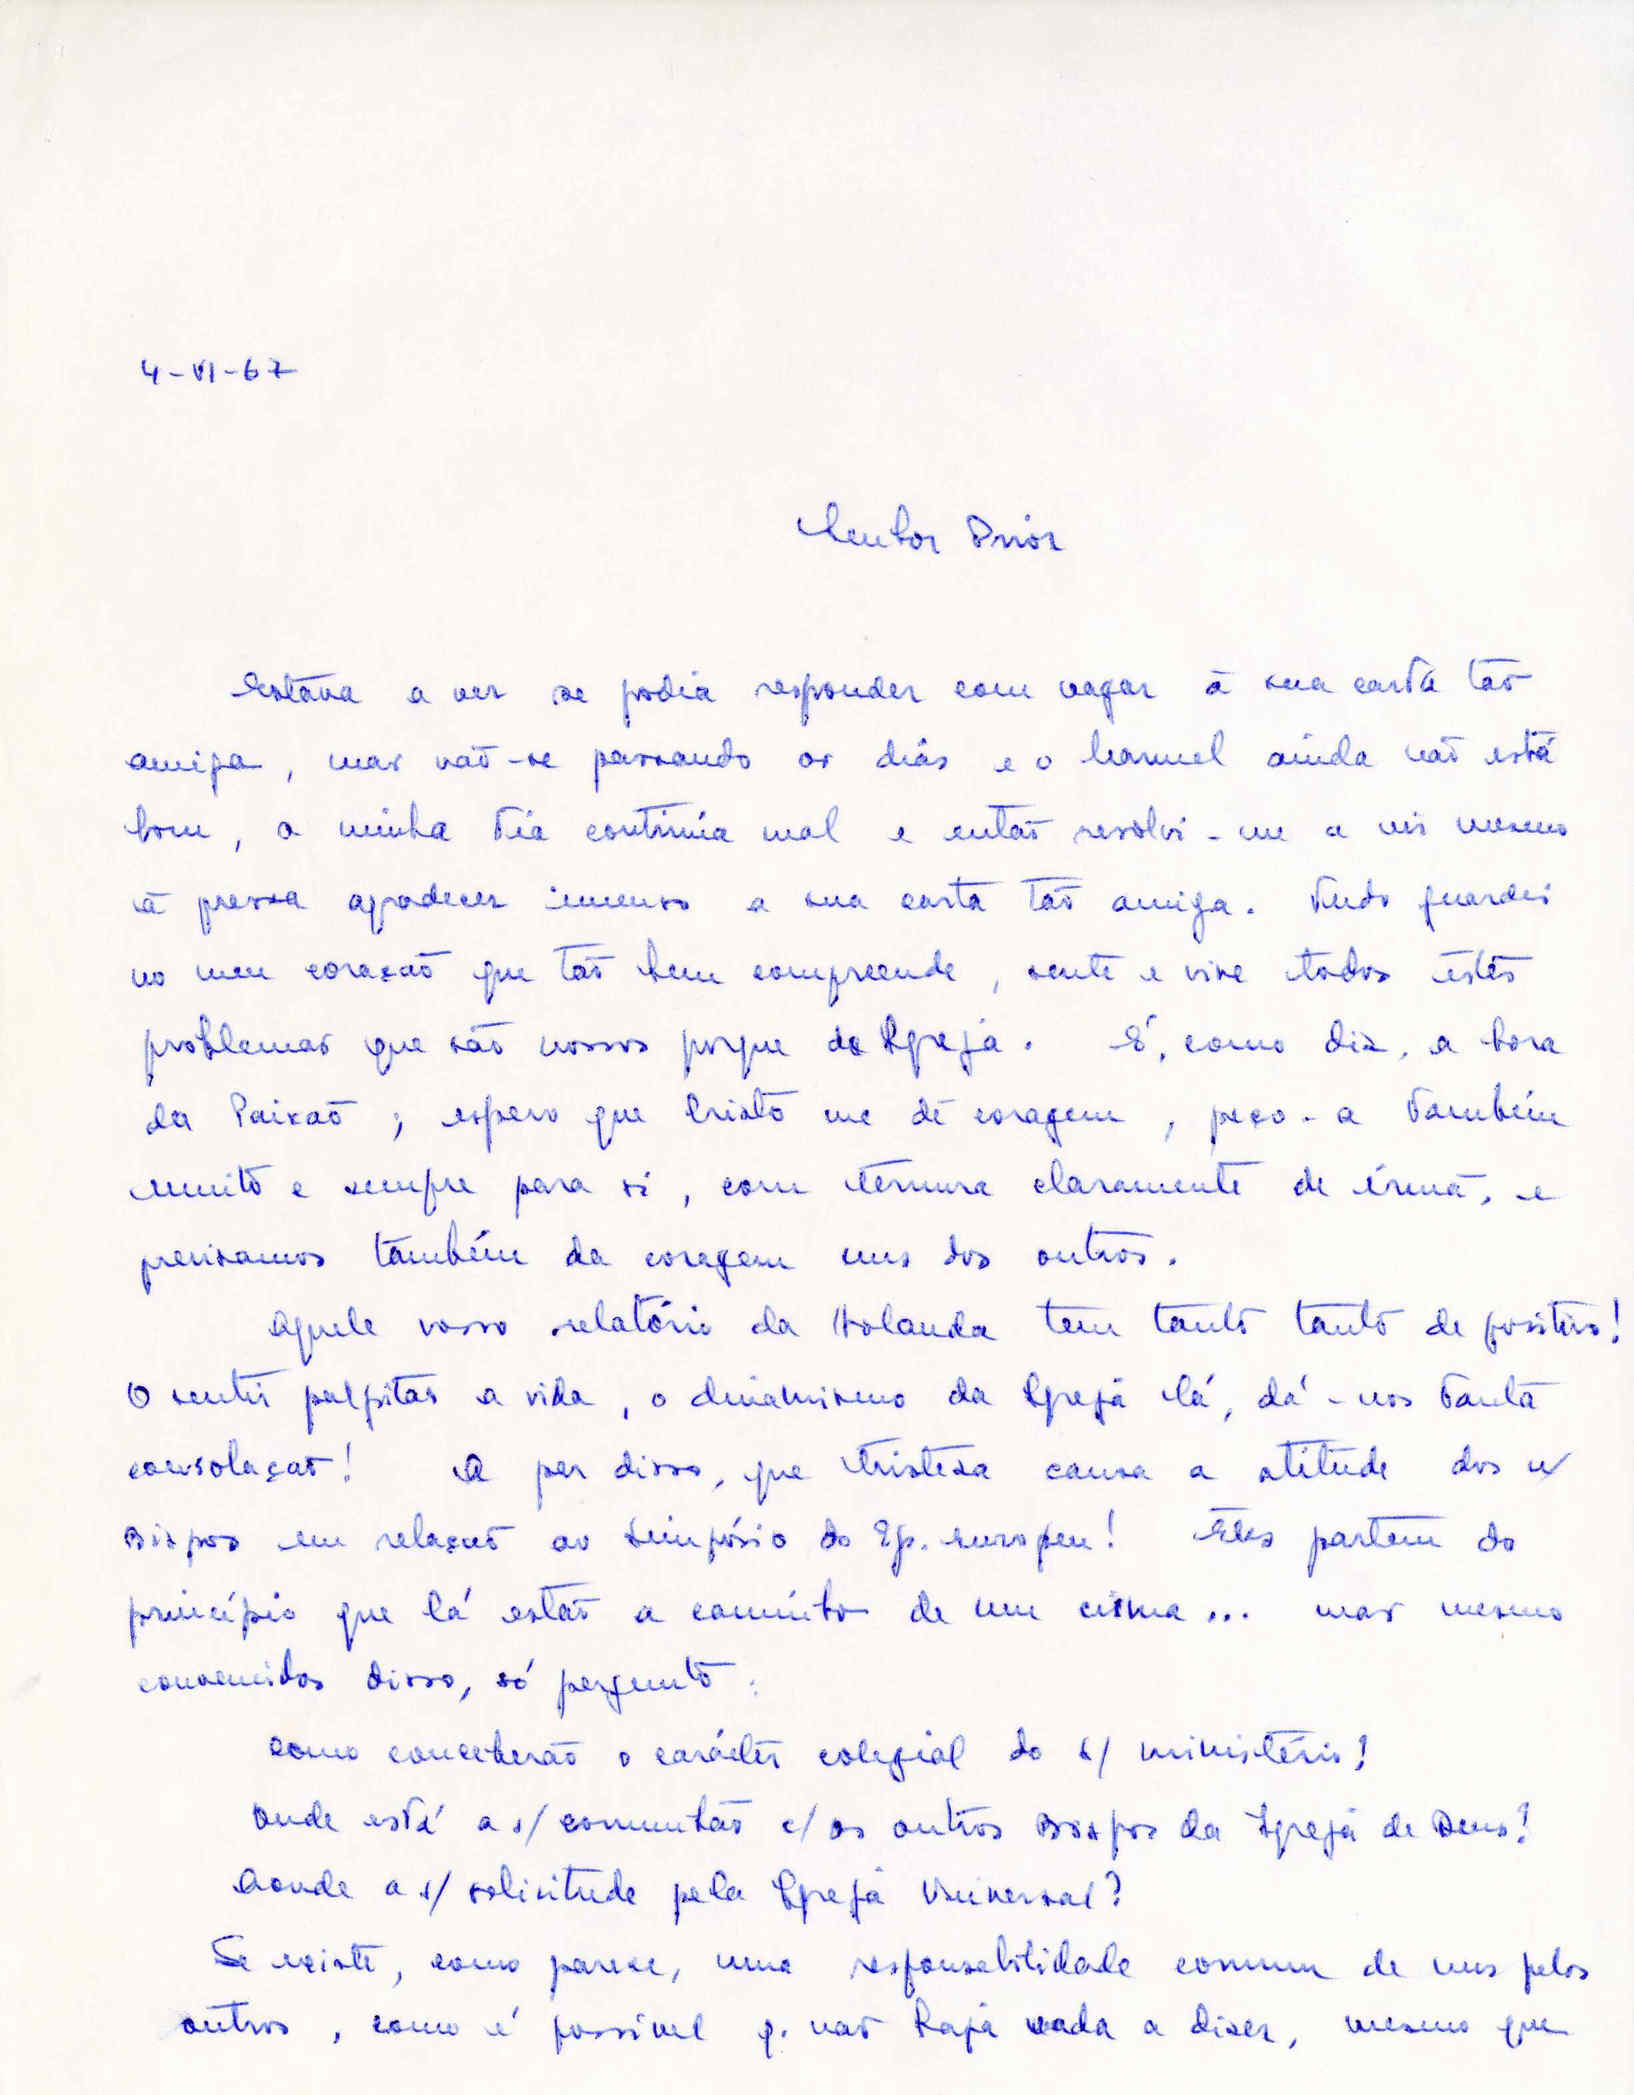 4-VI-67
Senhor Prior
Estava a ver se podia responder com vagar à sua carta tão
amiga, mas vão-se passando os dias e o Manuel ainda não está
bom, a minha tia continúa mal e então resolvi-me a vir mesmo
à pressa agradecer imenso a sua carta tão amiga. Tudo guardei
no meu coração que tão bem compreende, sente e vive todos êstes
problemas que são nossos porque da Igreja. É, como diz, a hora
da Paixão; espero que Cristo me dê coragem, peço-a também
muito e sempre para si, com ternura claramente de irmã, e
precisamos também da coragem uns dos outros.
Aquele vosso relatório da Holanda tem tanto tanto de positivo!
O sentir palpitar a vida, o dinamismo da Igreja lá, dá-nos tanta
consolação! A par disso, que tristeza causa a atitude dos n/
Bispos em relação ao Simpósio do Ep. Europeu! Êles partem do
princípio que lá estão a caminho de um cisma... mas mesmo
convencidos disso, só pergunto:
como conceberão o carácter colegial do s/ ministério?
Onde está a s/ comunhão c/ os outros Bispos da Igreja de Deus?
Aonde a s/ solicitude pela Igreja Universal?
Se existe, como parece, uma responsabilidade comum de uns pelos
outros, como é possivel q. não haja nada a dizer, mesmo que